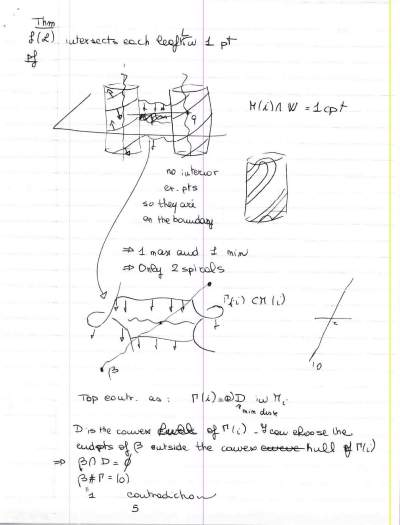 Thm
f(L) intersects each leaf L in 1 pt
Pf
M(i) ∩ W = 1 cpt
q
no interior
ex. pts
so they are
on the boundary
⇒ 1 max and 1 min
⇒ Only 2 spirals
Γ(i) ⊂ M(i)
β
Top contr. as: Γ(i) = ∂D in M_i
min disk
D is the convex hull of Γ(i) - I can choose the
endpts of β outside the convex hull of Γ(i)
⇒ β ∩ D = ∅
β # Γ = (0)
1 contradiction
5